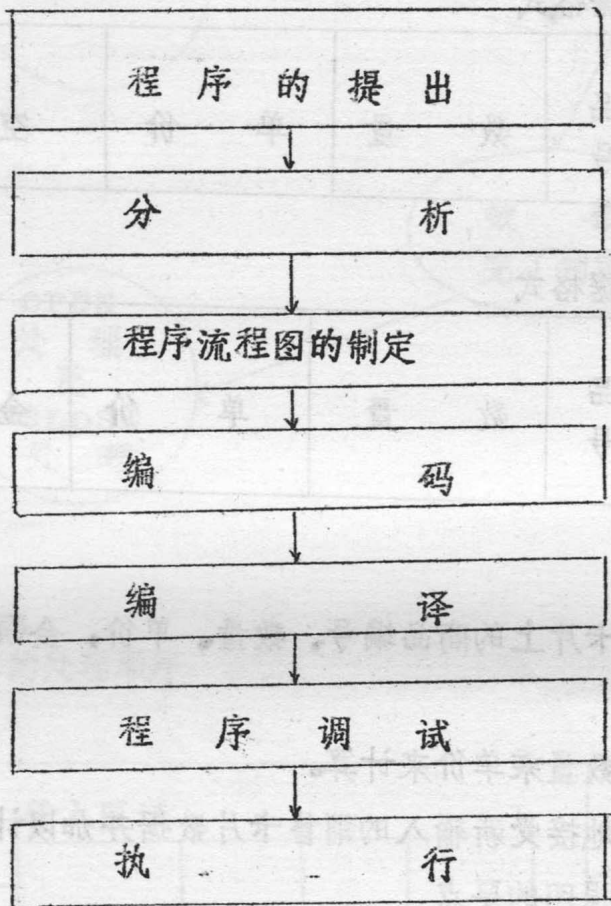 程序的提出
分析
程序流程图的制定
编码
编译
程序调试
执行